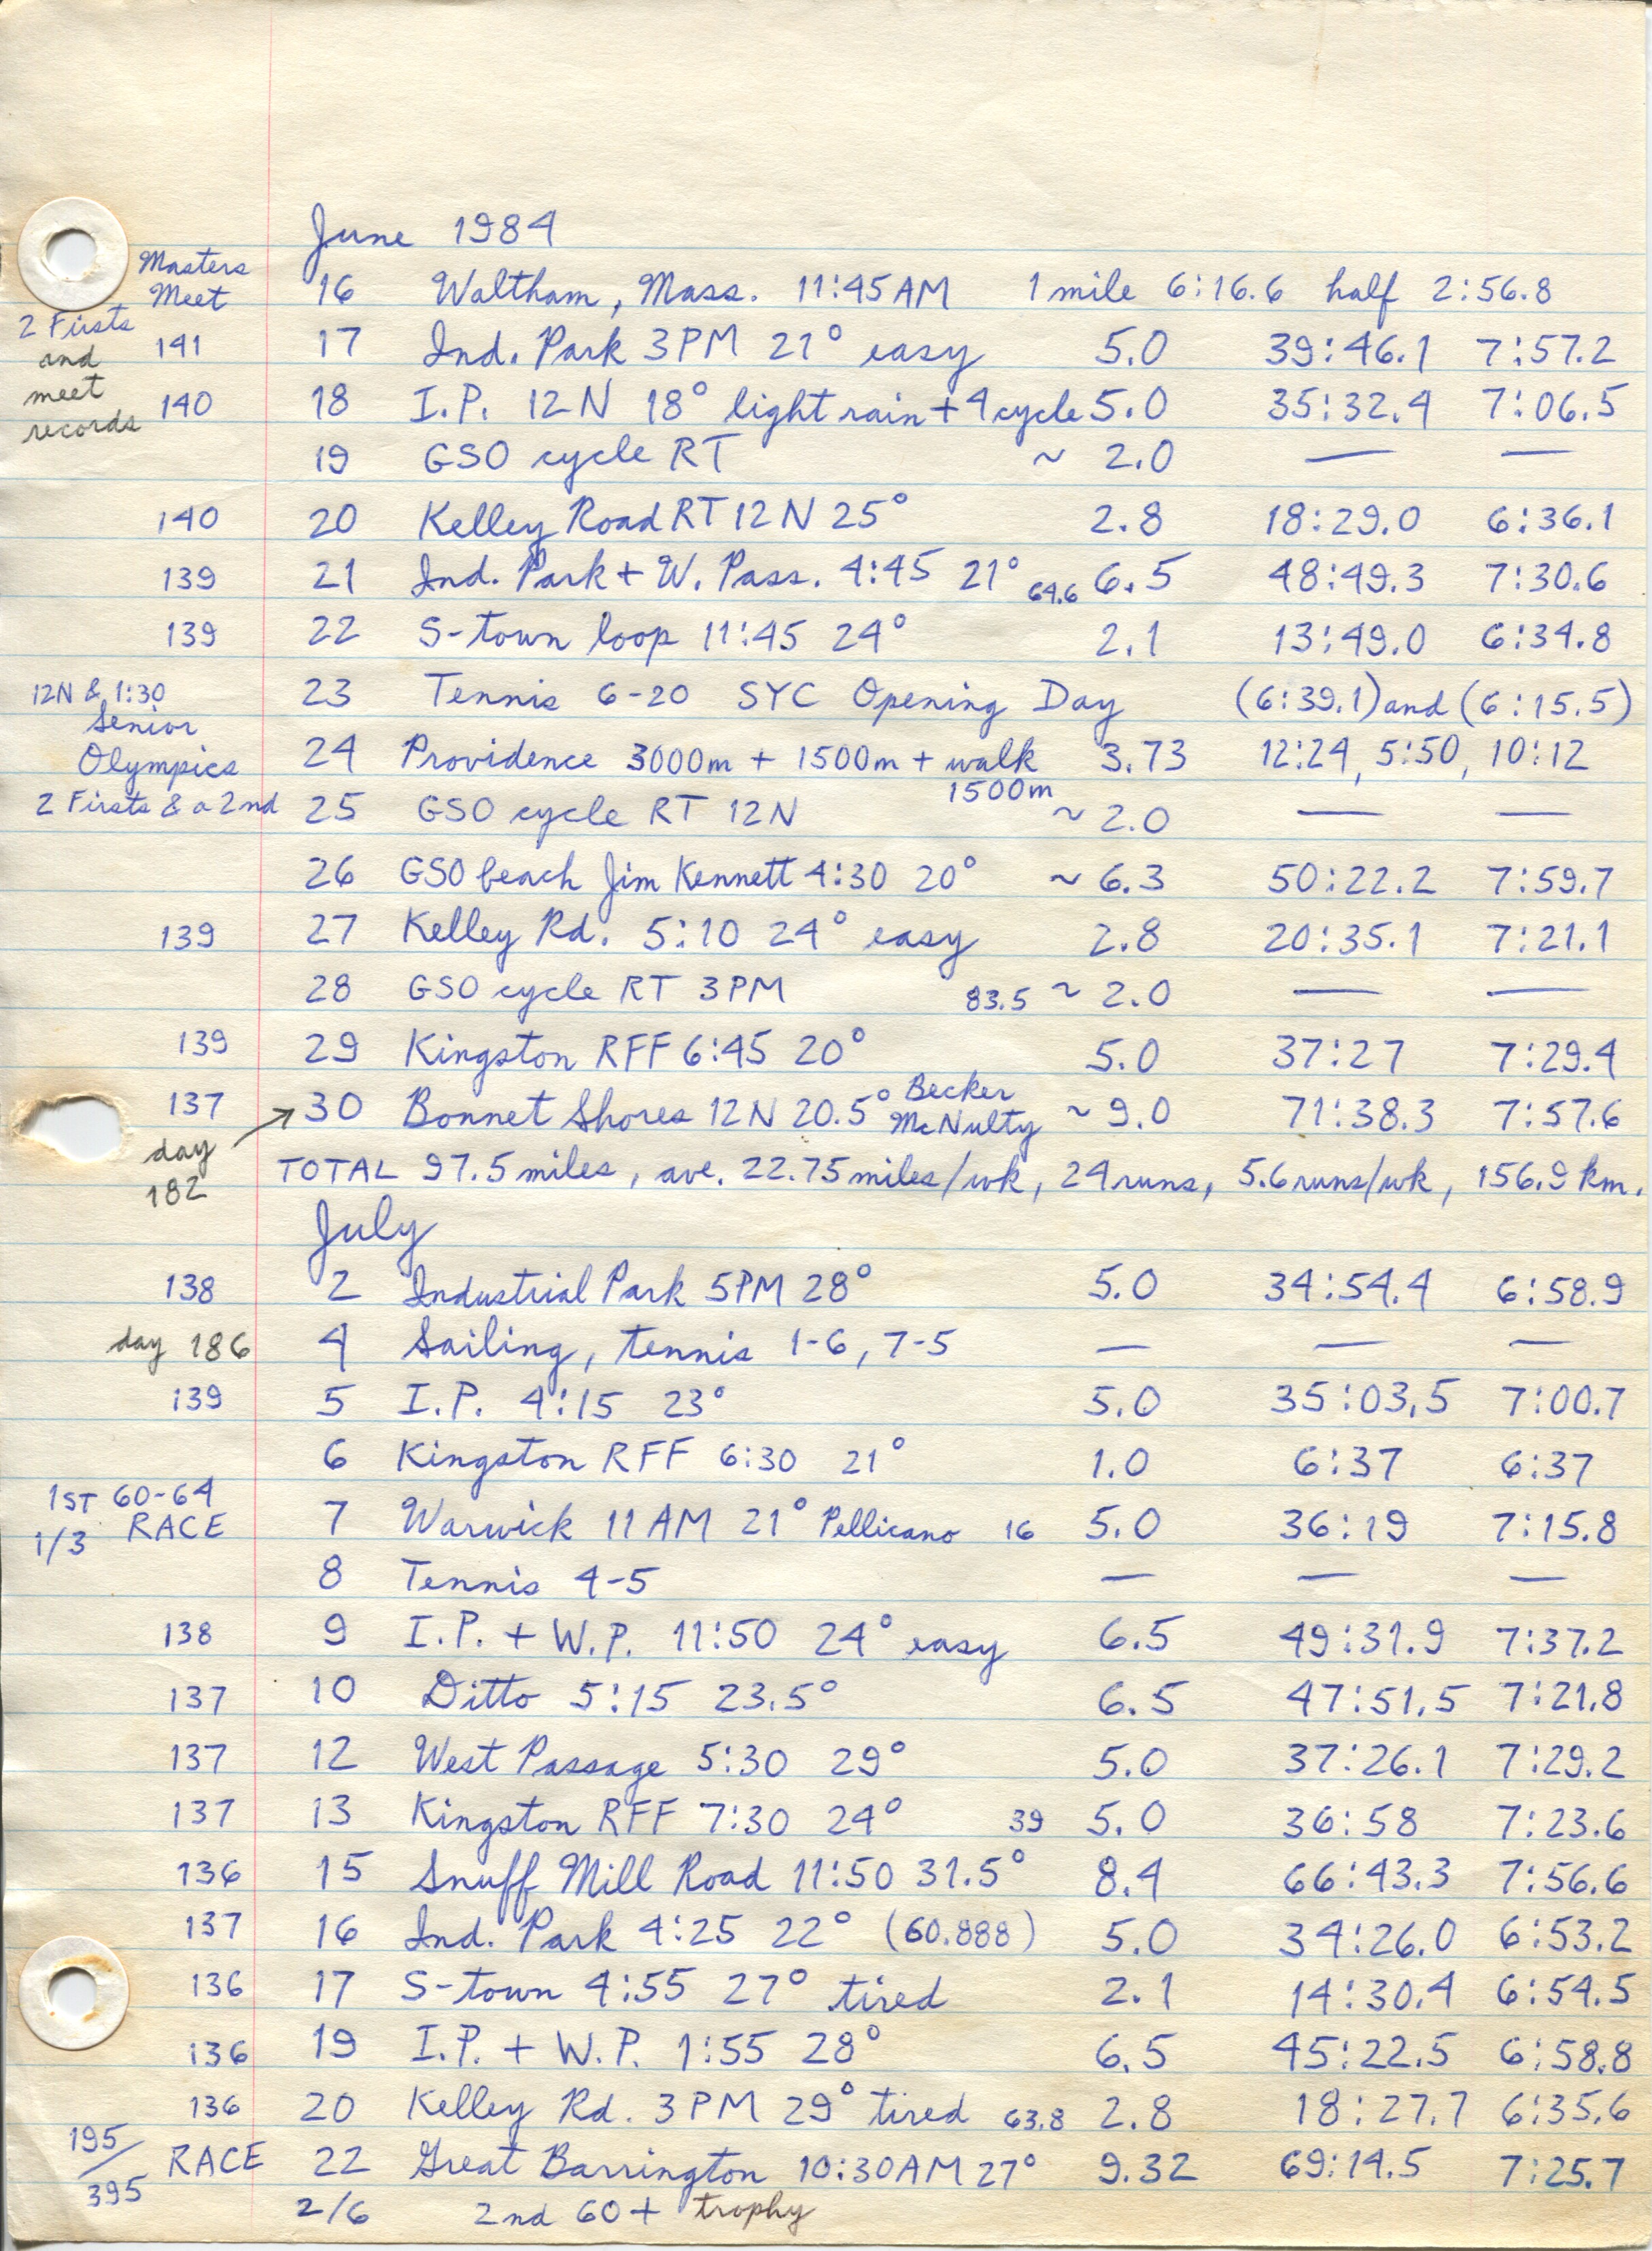 June 1984
Masters
Meet 16 Waltham, Mass. 11:45AM 1 mile 6:16.6 half 2:56.8
2 Firsts
and 141 17 Ind. Park 3PM 21° easy 5.0 39:46.1 7:57.2
meet 140 18 I.P. 12N 18° light rain + 4 cycle 5.0 35:32.4 7:06.5
records
19 GSO cycle RT ~ 2.0 — —
140 20 Kelley Road RT 12N 25° 2.8 18:29.0 6:36.1
139 21 Ind. Park + W. Pass. 4:45 21° 64.6 6.5 48:49.3 7:30.6
139 22 S-town loop 11:45 24° 2.1 13:49.0 6:34.8
12N & 1:30 23 Tennis 6-20 SYC Opening Day (6:39.1) and (6:15.5)
Senior
Olympics 24 Providence 3000m + 1500m + walk 3.73 12:24, 5:50, 10:12
1500m
2 Firsts & a 2nd 25 GSO cycle RT 12N ~ 2.0 — —
26 GSO beach Jim Kennett 4:30 20° ~ 6.3 50:22.2 7:59.7
139 27 Kelley Rd. 5:10 24° easy 2.8 20:35.1 7:21.1
28 GSO cycle RT 3PM 83.5 ~ 2.0 — —
139 29 Kingston RFF 6:45 20° 5.0 37:27 7:29.4
Becker
137 → 30 Bonnet Shores 12N 20.5° McNulty ~ 9.0 71:38.3 7:57.6
day
182
TOTAL 97.5 miles, ave. 22.75 miles/wk, 24 runs, 5.6 runs/wk, 156.9 km.
July
138 2 Industrial Park 5PM 28° 5.0 34:54.4 6:58.9
day 186 4 Sailing, tennis 1-6, 7-5 — — —
139 5 I.P. 4:15 23° 5.0 35:03.5 7:00.7
6 Kingston RFF 6:30 21° 1.0 6:37 6:37
1ST 60-64
1/3 RACE 7 Warwick 11AM 21° Pellicano 16 5.0 36:19 7:15.8
8 Tennis 4-5 — — —
138 9 I.P. + W.P. 11:50 24° easy 6.5 49:31.9 7:37.2
137 10 Ditto 5:15 23.5° 6.5 47:51.5 7:21.8
137 12 West Passage 5:30 29° 5.0 37:26.1 7:29.2
137 13 Kingston RFF 7:30 24° 39 5.0 36:58 7:23.6
136 15 Snuff Mill Road 11:50 31.5° 8.4 66:43.3 7:56.6
137 16 Ind. Park 4:25 22° (60.888) 5.0 34:26.0 6:53.2
136 17 S-town 4:55 27° tired 2.1 14:30.4 6:54.5
136 19 I.P. + W.P. 1:55 28° 6.5 45:22.5 6:58.8
136 20 Kelley Rd. 3PM 29° tired 63.8 2.8 18:27.7 6:35.6
195/395 RACE 22 Great Barrington 10:30AM 27° 9.32 69:14.5 7:25.7
2/6 2nd 60+ trophy